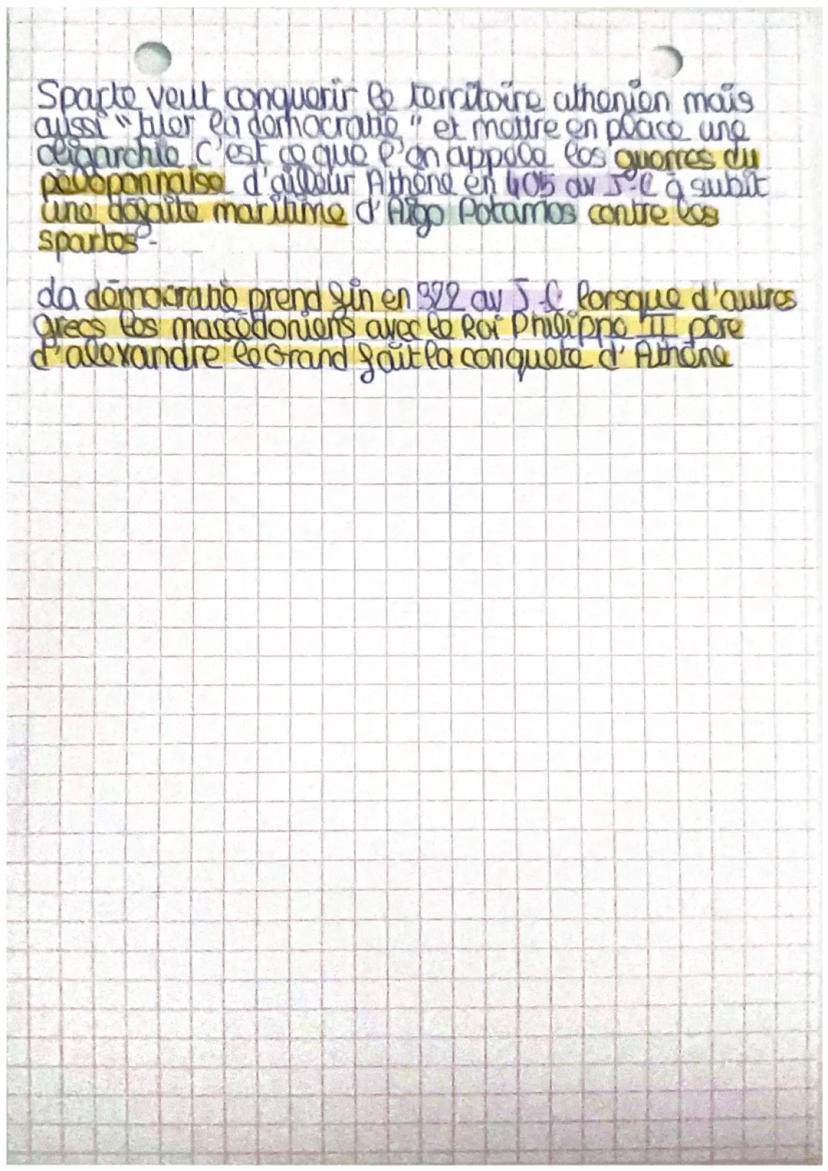 Sparte veut conquerir le territoire athenien mais
aussi "tuer la democratie" et mettre en place une
oligarchie c'est ce que l'on appele les guerres du
peloponnaise d'ailleur Athène en 405 av J-C à subit
une défaite maritime d'Aigo Potamos contre les
spartes.
La démocratie prend fin en 322 av J-C lorsque d'autres
grecs les maccédoniens avec le Roi Philippe II père
d'alexandre le Grand fait la conquete d'Athène